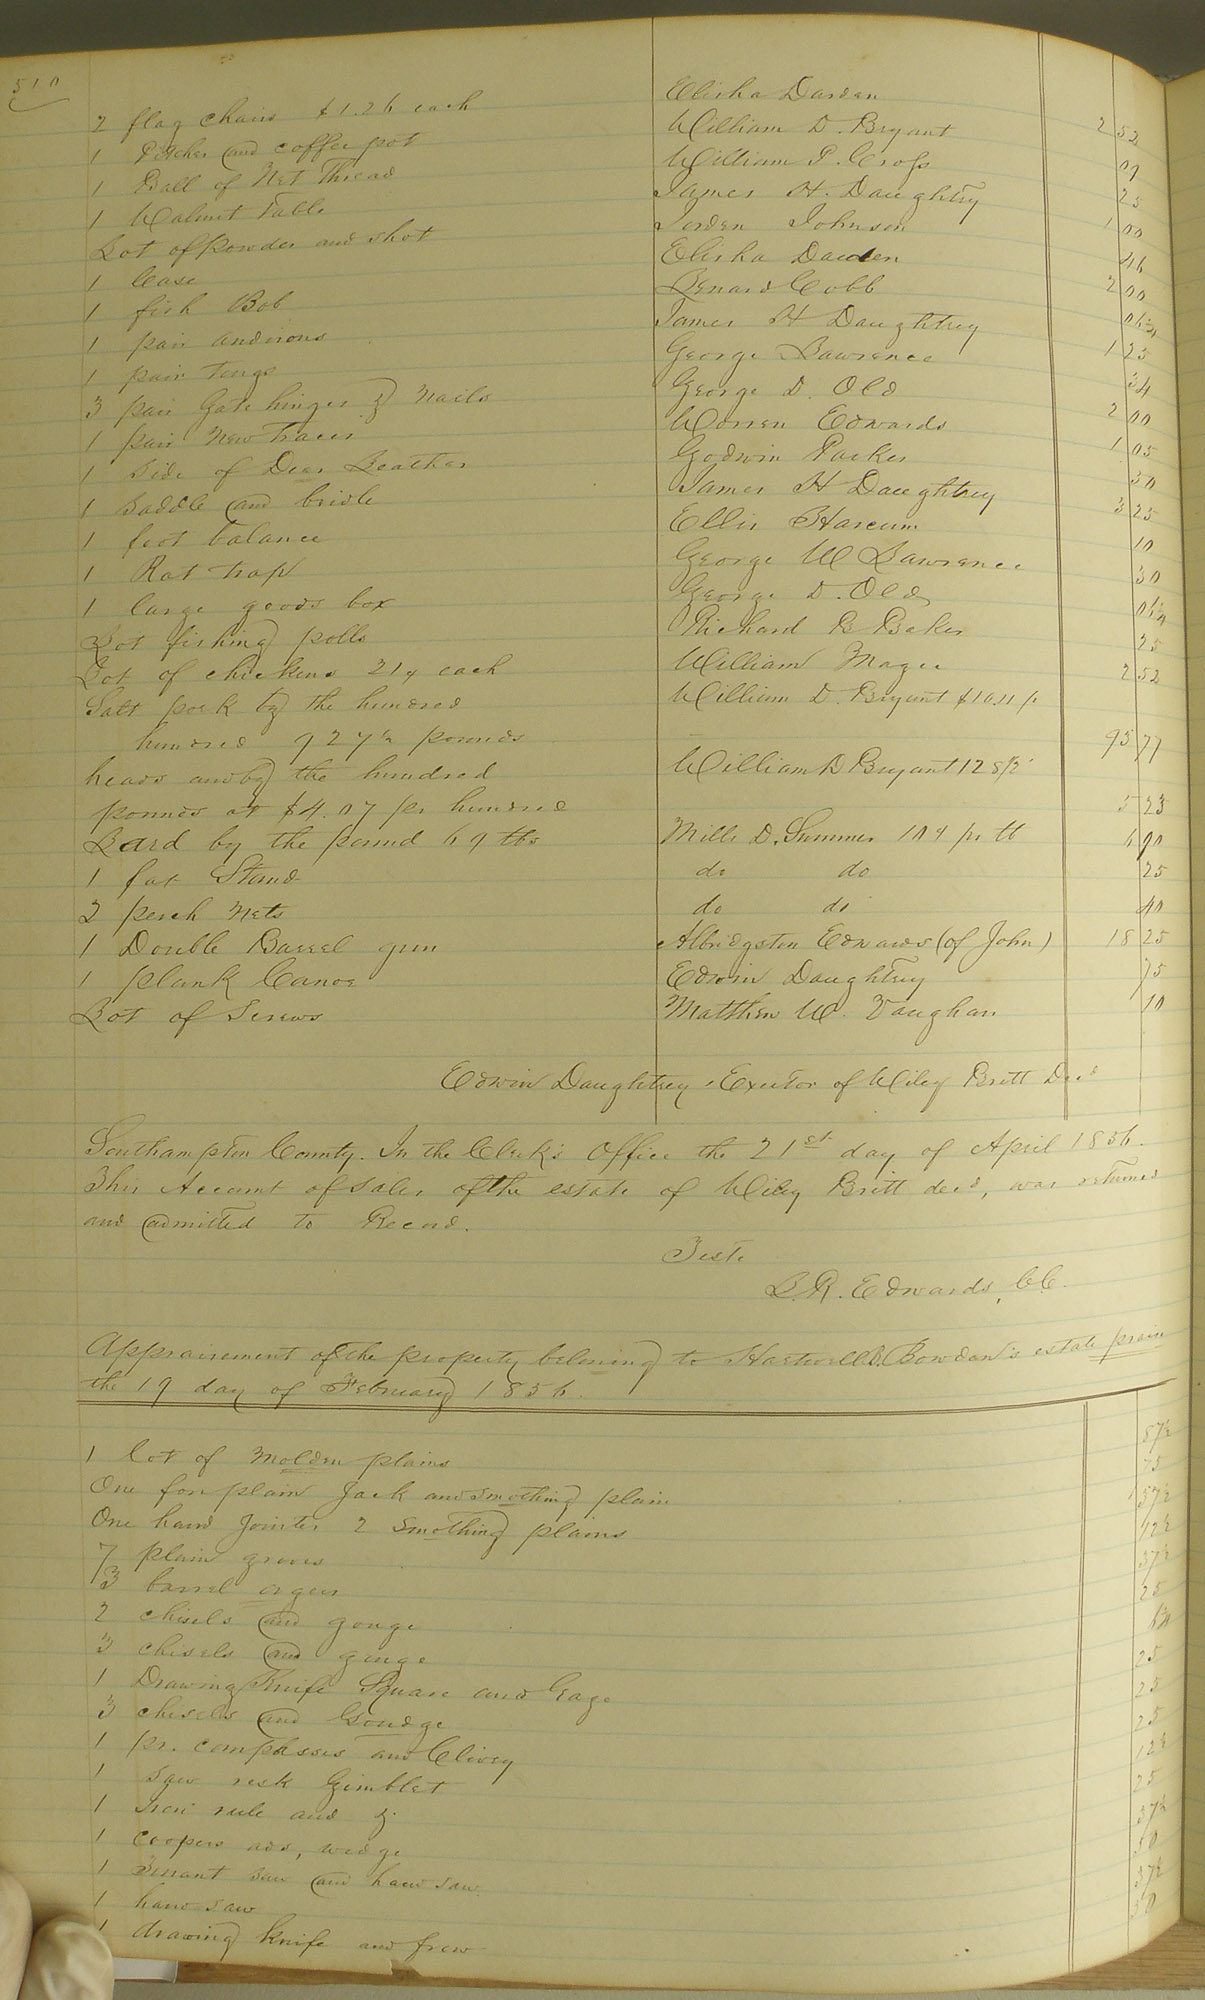 510
2 flag chairs $1.26 each Elisha Darden 2 52
1 Pitcher and coffee pot William D. Bryant 09
1 Ball of Net Thread William P. Cross 25
1 Walnut Table James H. Daughtry 1 00
Lot of powder and shot Jorden Johnson 46
1 Case Elisha Darden 2 00
1 fish Bob Lenard Cobb 06¼
1 pair andirons James H Daughtrey 1 25
1 pair tongs George Lawrence 34
3 pair Gate hinges & Nails George D. Old 2 00
1 pair New Traces Worren Edwards 1 05
1 Side of Dear Leather Godwin Parker 30
1 saddle and bridle James H Daughtrey 3 25
1 foot balance Ellis Harcum 10
1 Rat trap George W Lawrence 30
1 large goods box George D. Old 06¼
Lot fishing polls Richard B Baker 25
Lot of chickens 21¢ each William Magee 2 52
Salt pork by the hundred William D. Bryant
hundred 927½ pounds 95 77
heads and by the hundred William D Bryant 128½
pounds at $4.07 per hundred 5 23
Lard by the pound 69 lbs Mills D. Summer 10¢ pr lb 6 90
1 fat Stand do do 25
2 perch Nets do do 40
1 Double Barrel gun Albridgston Edwards (of John) 18 25
1 plank Canoe Edwin Daughtrey 75
Lot of Screws Matthew W. Vaughan 10
Edwin Daughtrey, Exutor of Wiley Britt Decd
Southampton County. In the Clerk's Office the 21st day of April 1856.
This Account of sales of the estate of Wiley Britt decd, was returned
and admitted to Record.
Teste
L. R. Edwards, CC.
Appraisement of the property beloning to Hartwell D. Bowdon's estate prais
the 19 day of February 1856.
1 lot of Molden plains 87½
One fon plain Jack and smothing plain 75
One hand Jointer 2 smothing plains 37½
7 plain groves 12½
3 barrel orgers 37½
2 chisels and gouge 25
3 chisels and gouge 6¼
1 Drawing Knife Square and Gage 25
3 chisels and Goudge 25
1 pr. compasses and Clivey 25
1 saw resk Gimblet 12½
1 Iron rule and 25
1 coopers ads, wedge 37½
1 Tennant saw and hand saw 50
1 hand saw 37½
1 drawing knife and frow 50